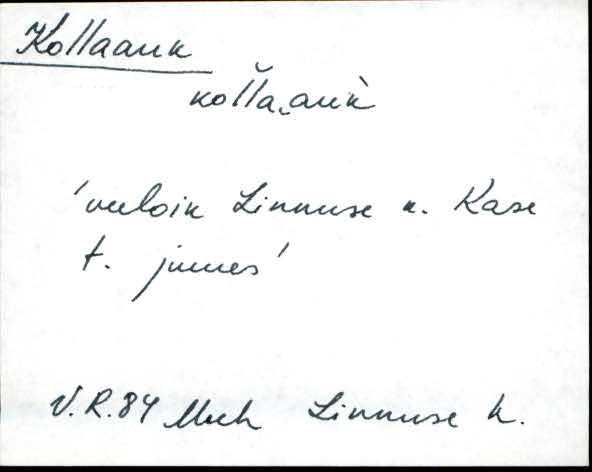 Kollaauk
kol̆la‿auk̀
'veeloik Linnuse k. Kase
t. juures'
V.R.84 Muh Linnuse k.